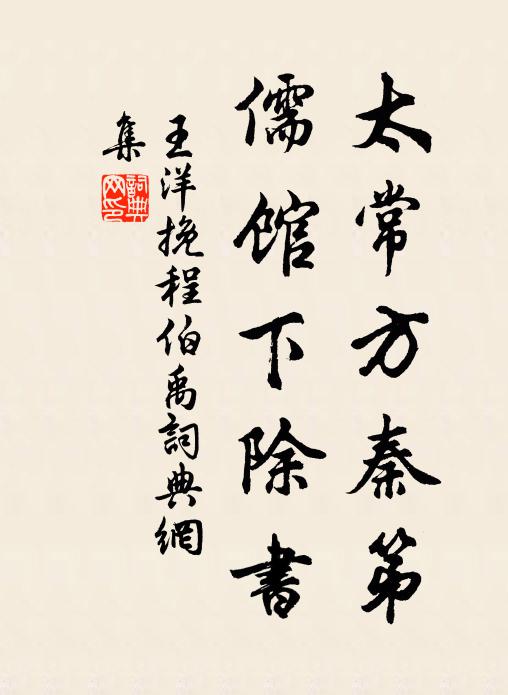 太常方秦第
儒館下除書
王洋挽程伯禹詞典網
集
詞典網印